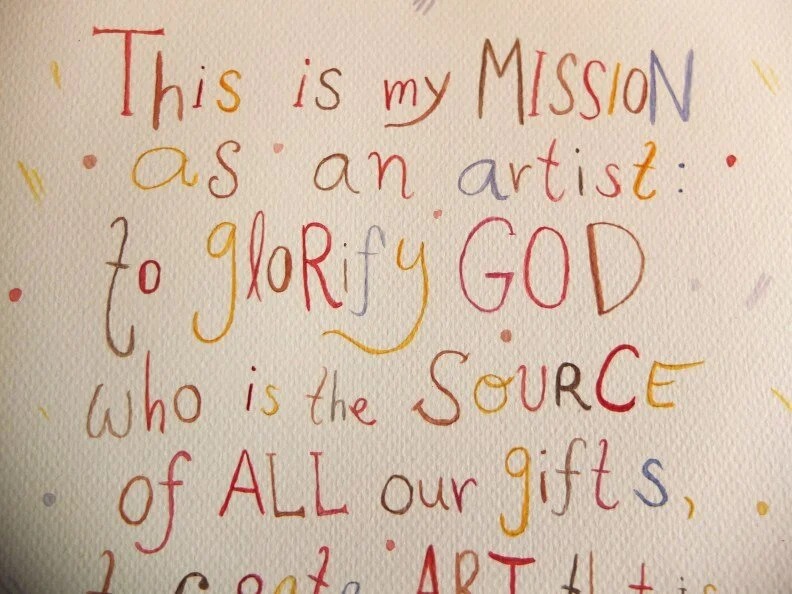 This is my MISSION
as an artist:
to gloRify GOD
who is the SOURCE
of ALL our gifts,
to create ART that is